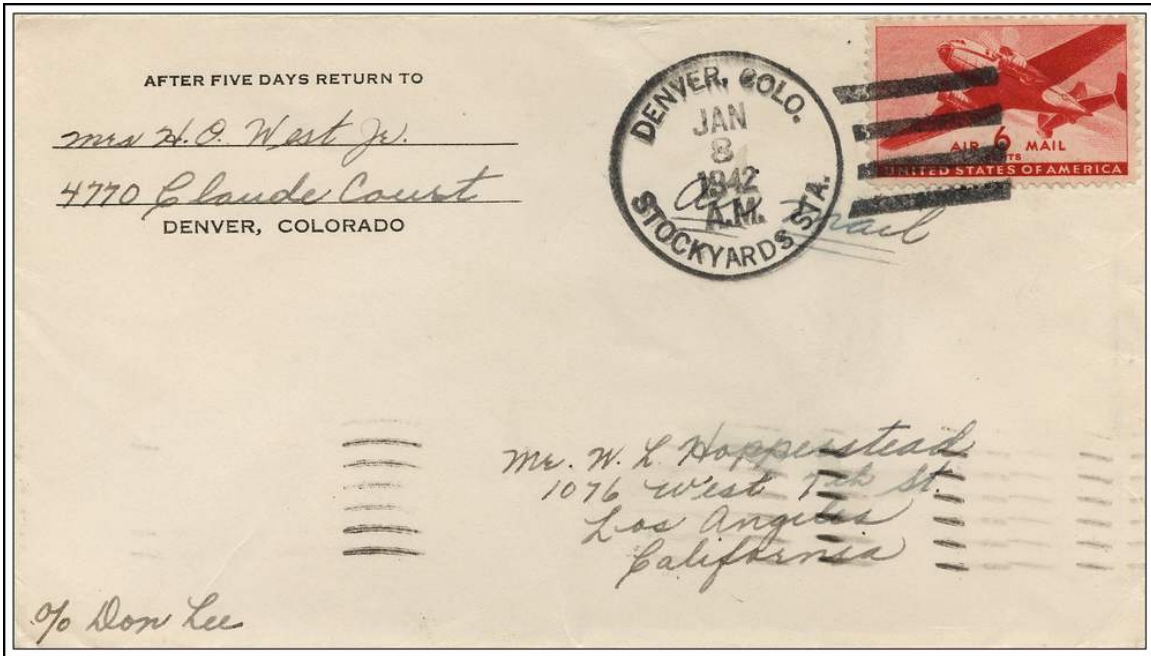 AFTER FIVE DAYS RETURN TO
Mrs H. O. West Jr.
4770 Claude Court
DENVER, COLORADO
DENVER, COLO.
JAN
8
1942
A.M.
STOCKYARDS STA.
Air Mail
AIR 6 MAIL
CENTS
UNITED STATES OF AMERICA
Mr. W. L. Hopperstead
1076 West 7th St.
Los Angeles
California
c/o Don Lee